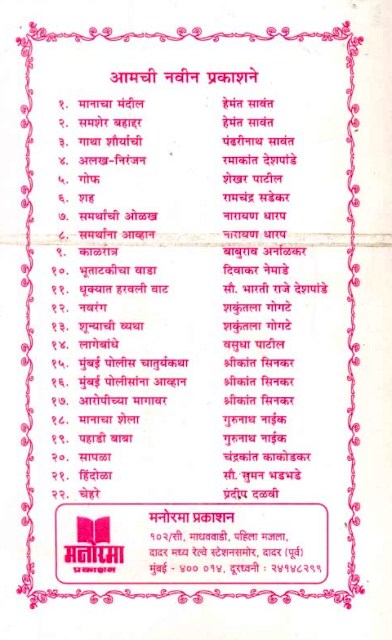 आमची नवीन प्रकाशने
१. मानाचा मंदील हेमंत सावंत
२. समशेर बहाद्दर हेमंत सावंत
३. गाथा शौर्याची पंढरीनाथ सावंत
४. अलख-निरंजन रमाकांत देशपांडे
५. गोफ शेखर पाटील
६. शह रामचंद्र सडेकर
७. समर्थांची ओळख नारायण धारप
८. समर्थांना आव्हान नारायण धारप
९. काळरात्र बाबुराव अर्नाळकर
१०. भूताटकीचा वाडा दिवाकर नेमाडे
११. धूक्यात हरवली वाट सौ. भारती राजे देशपांडे
१२. नवरंग शकुंतला गोगटे
१३. शून्याची व्यथा शकुंतला गोगटे
१४. लागेबांधे वसुधा पाटील
१५. मुंबई पोलीस चातुर्यकथा श्रीकांत सिनकर
१६. मुंबई पोलीसांना आव्हान श्रीकांत सिनकर
१७. आरोपीच्या मागावर श्रीकांत सिनकर
१८. मानाचा शेला गुरुनाथ नाईक
१९. पहाडी बाबा गुरुनाथ नाईक
२०. सापळा चंद्रकांत काकोडकर
२१. हिंदोळा सौ. सुमन भडभडे
२२. चेहरे प्रदीप दळवी
मनोरमा प्रकाशन
१०२/सी, माधववाडी, पहिला मजला,
दादर मध्य रेल्वे स्टेशनसमोर, दादर (पूर्व)
मुंबई - ४०० ०१४, दूरध्वनी : २४१४८२९९
मनोरमा
प्रकाशन